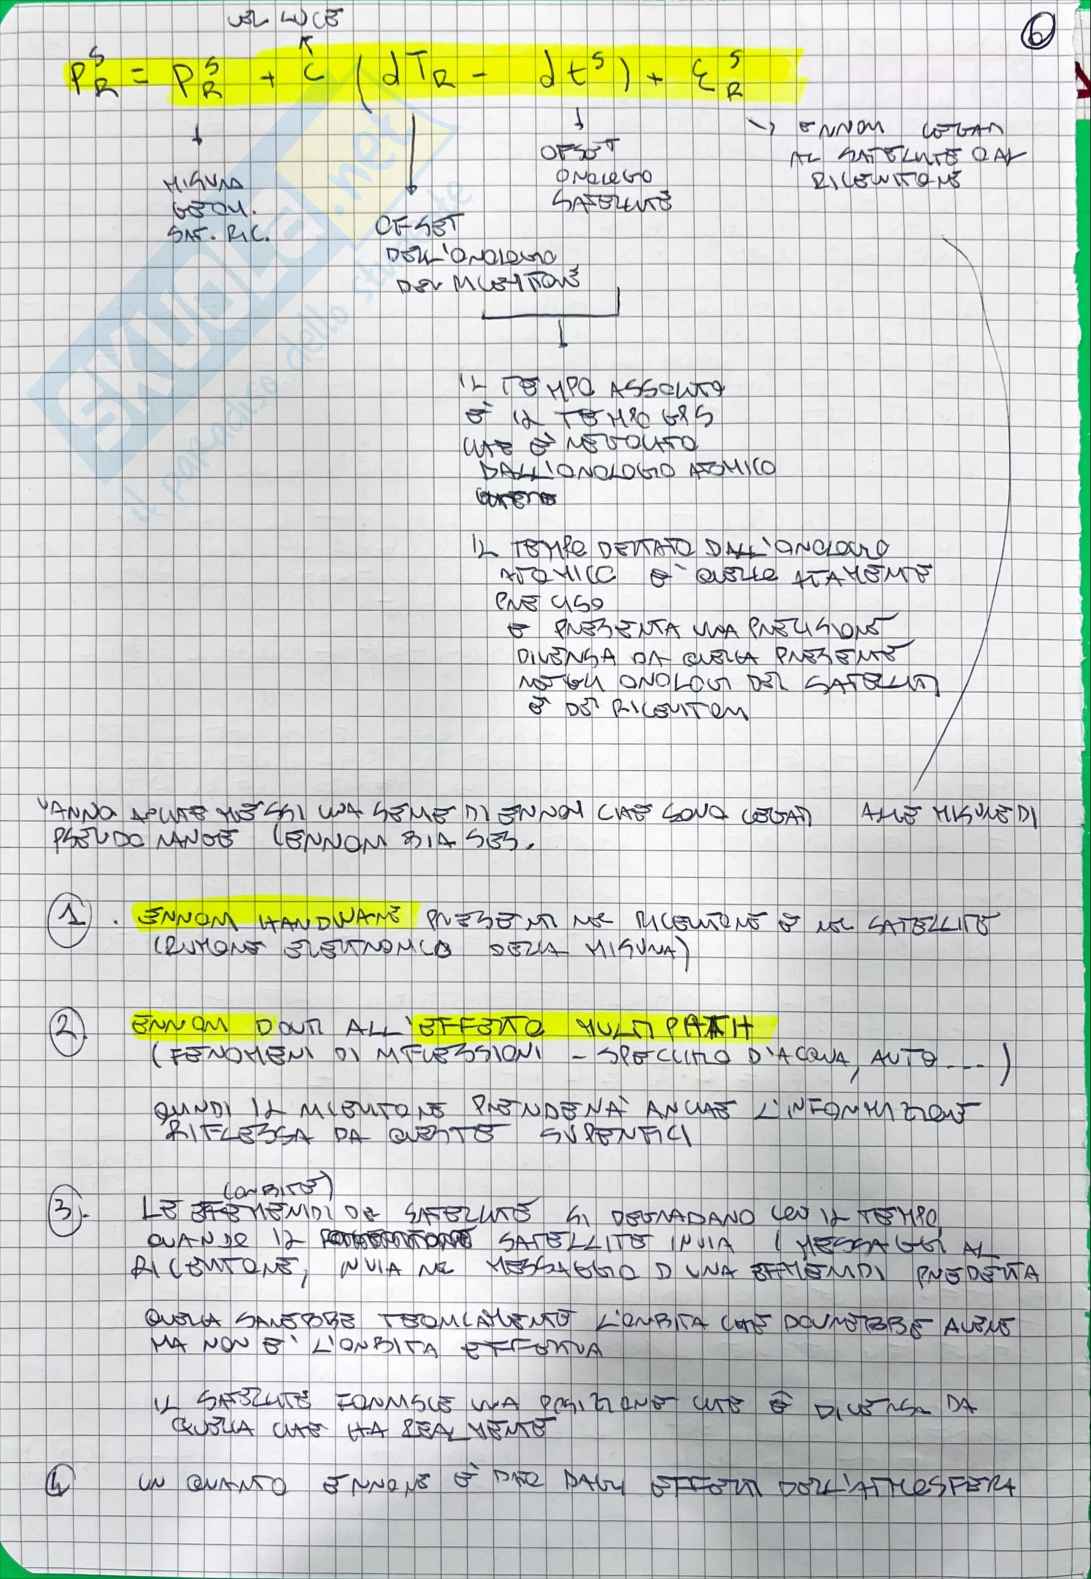 VEL LUCE
6
P_R^S = ρ_R^S + C (dT_R - dt^S) + ε_R^S
MISURA
GEOM.
SAT. RIC.
OFSET
DELL'OROLOGIO
DEL RICEVITORE
OFSET
OROLOGIO
SATELLITE
→ ERRORI LEGATI
AL SATELLITE O AL
RICEVITORE
IL TEMPO ASSOLUTO
È IL TEMPO GPS
CHE È REGOLATO
DALL'OROLOGIO ATOMICO
IL TEMPO DETTATO DALL'OROLOGIO
ATOMICO È QUELLO ALTAMENTE
PRECISO
E PRESENTA UNA PRECISIONE
DIVERSA DA QUELLA PRESENTE
NEGLI OROLOGI DEI SATELLITI
E DEI RICEVITORI
VANNO AMMESSI UNA SERIE DI ERRORI CHE SONO LEGATI ALLE MISURE DI
PSEUDO RANGE (ERRORI BIASES.
1. ERRORI HARDWARE PRESENTI NEL RICEVITORE E NEL SATELLITE
(RUMORE ELETTRONICO DELLA MISURA)
2 ERRORI DOVUTI ALL'EFFETTO MULTIPATH
(FENOMENI DI RIFLESSIONI - SPECCHIO D'ACQUA, AUTO ....)
QUINDI IL RICEVITORE PRENDERÀ ANCHE L'INFORMAZIONE
RIFLESSA DA QUESTE SUPERFICI
(ORBITE)
3. LE EFFEMERIDI DEL SATELLITE SI DEGRADANO CON IL TEMPO,
QUANDO IL SATELLITE INVIA I MESSAGGI AL
RICEVITORE, INVIA NEL MESSAGGIO D UNA EFFEMERIDI PREDETTA
QUELLA SAREBBE TEORICAMENTE L'ORBITA CHE DOVREBBE AVERE
MA NON È L'ORBITA EFFETTIVA
IL SATELLITE FORNISCE UNA POSIZIONE CHE È DIVERSA DA
QUELLA CHE HA REALMENTE
4 UN QUARTO ERRORE È DATO DAGLI EFFETTI DELL'ATMOSFERA
SKUOLA.net
il paradiso dello studente